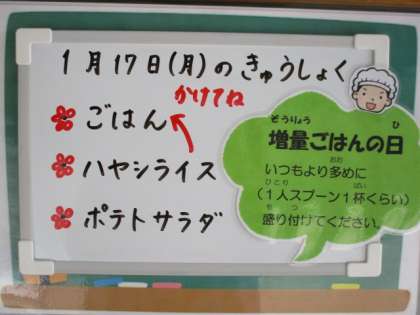 1月17日(月)のきゅうしょく
かけてね
ごはん
ハヤシライス
ポテトサラダ
ぞうりょう ひ
増量ごはんの日
おお
いつもより多めに
ひとり ぱい
(1人スプーン1杯くらい)
も つ
盛り付けてください。